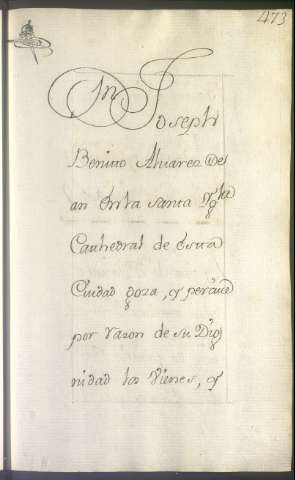 473
Dn Joseph
Benitto Alvarez De
an en la Santa Ygla
Cathedral de esta
Ciudad goza, y percive
por razon de su Dig
nidad los vienes, y